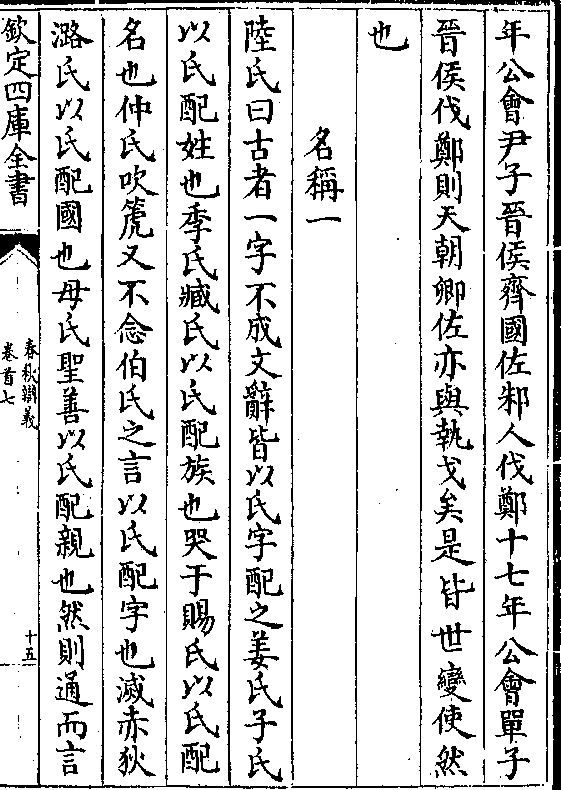 年公會尹子晉侯齊國佐邾人伐鄭十七年公會單子
晉侯伐鄭則天朝卿佐亦與執戈矣是皆世變使然
也
名稱一
陸氏曰古者一字不成文辭皆以氏字配之姜氏子氏
以氏配姓也季氏臧氏以氏配族也哭于賜氏以氏配
名也仲氏吹篪又不念伯氏之言以氏配字也滅赤狄
潞氏以氏配國也母氏聖善以氏配親也然則通而言
欽定四庫全書
春秋辯義
卷首七
十五